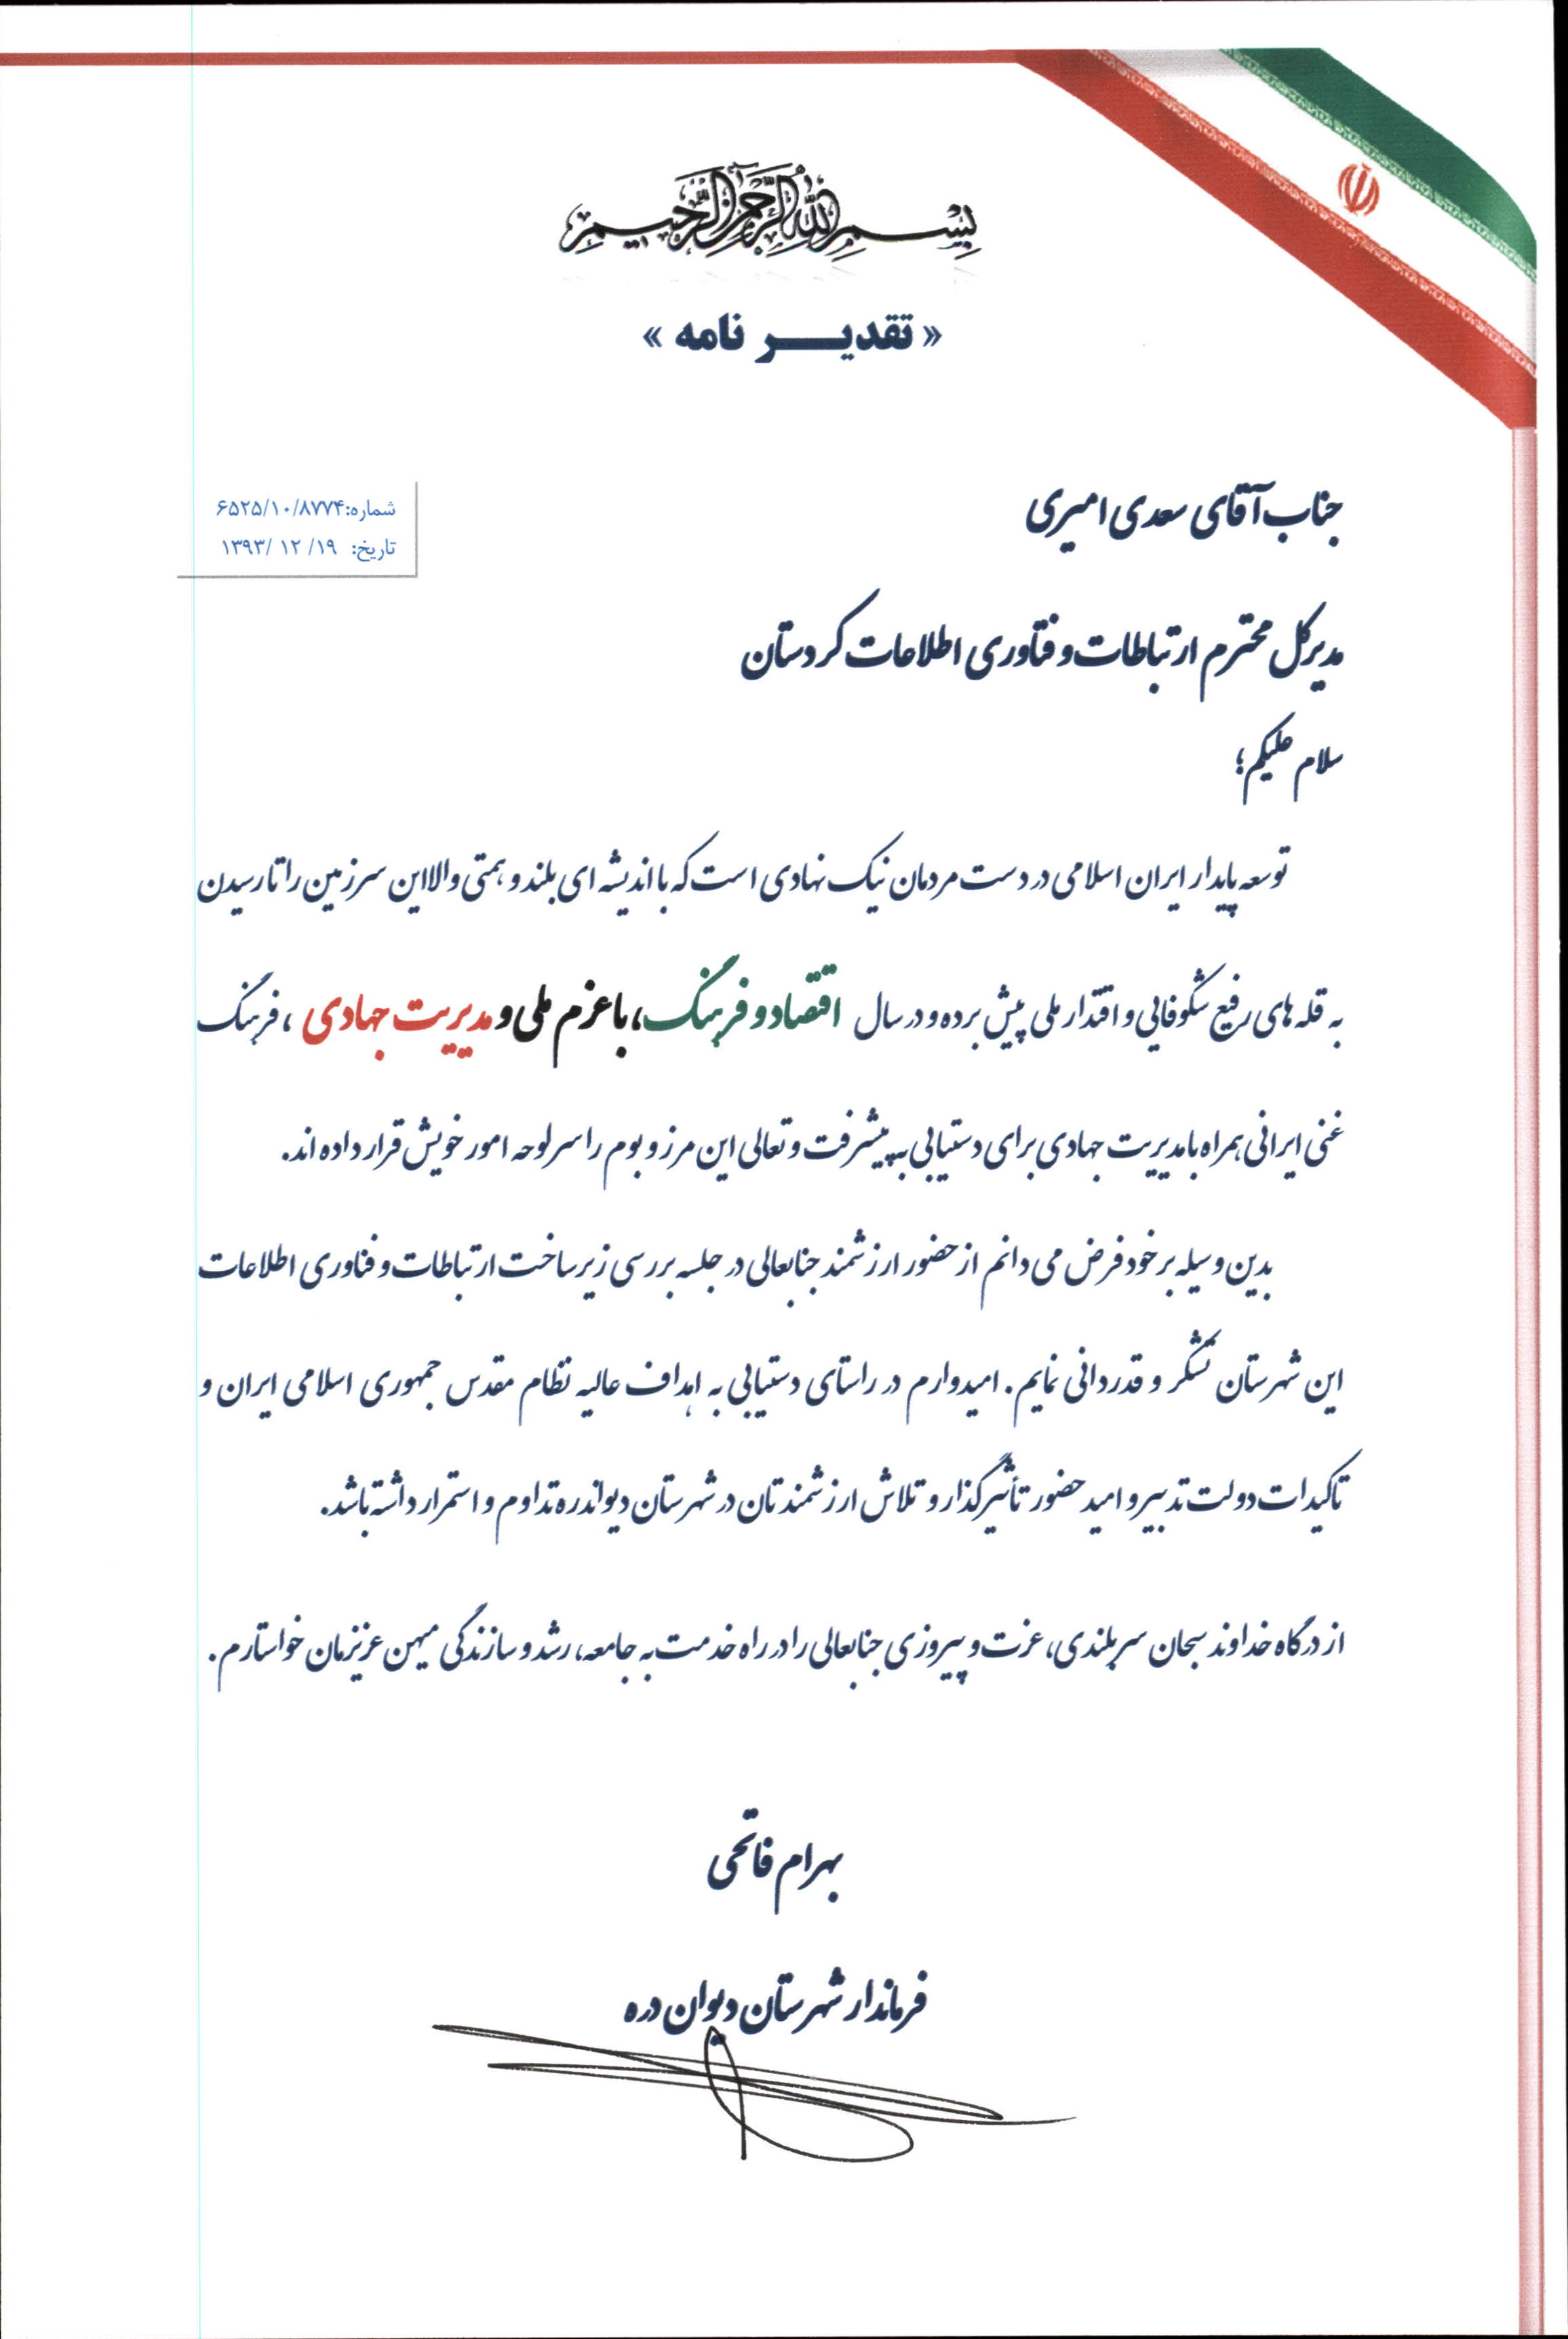 بسم الله الرحمن الرحیم
« تقدیـــر نامه »
شماره:۶۵۲۵/۱۰/۸۷۷۴
تاریخ: ۱۹/ ۱۲ /۱۳۹۳
جناب آقای سعدی امیری
مدیرکل محترم ارتباطات و فناوری اطلاعات کردستان
سلام علیکم؛
توسعه پایدار ایران اسلامی در دست مردمان نیک نهادی است که با اندیشه ای بلند و همتی والا این سرزمین را تا رسیدن
به قله های رفیع شکوفایی و اقتدار ملی پیش برده و در سال اقتصاد و فرهنگ، با عزم ملی و مدیریت جهادی ، فرهنگ
غنی ایرانی همراه با مدیریت جهادی برای دستیابی به پیشرفت و تعالی این مرز و بوم را سرلوحه امور خویش قرار داده اند.
بدین وسیله بر خود فرض می دانم از حضور ارزشمند جنابعالی در جلسه بررسی زیرساخت ارتباطات و فناوری اطلاعات
این شهرستان تشکر و قدردانی نمایم. امیدوارم در راستای دستیابی به اهداف عالیه نظام مقدس جمهوری اسلامی ایران و
تاکیدات دولت تدبیر و امید حضور تأثیرگذار و تلاش ارزشمندتان در شهرستان دیواندره تداوم و استمرار داشته باشد.
از درگاه خداوند سبحان سربلندی، عزت و پیروزی جنابعالی را در راه خدمت به جامعه، رشد و سازندگی میهن عزیزمان خواستارم.
بهرام فاتحی
فرماندار شهرستان دیوان دره